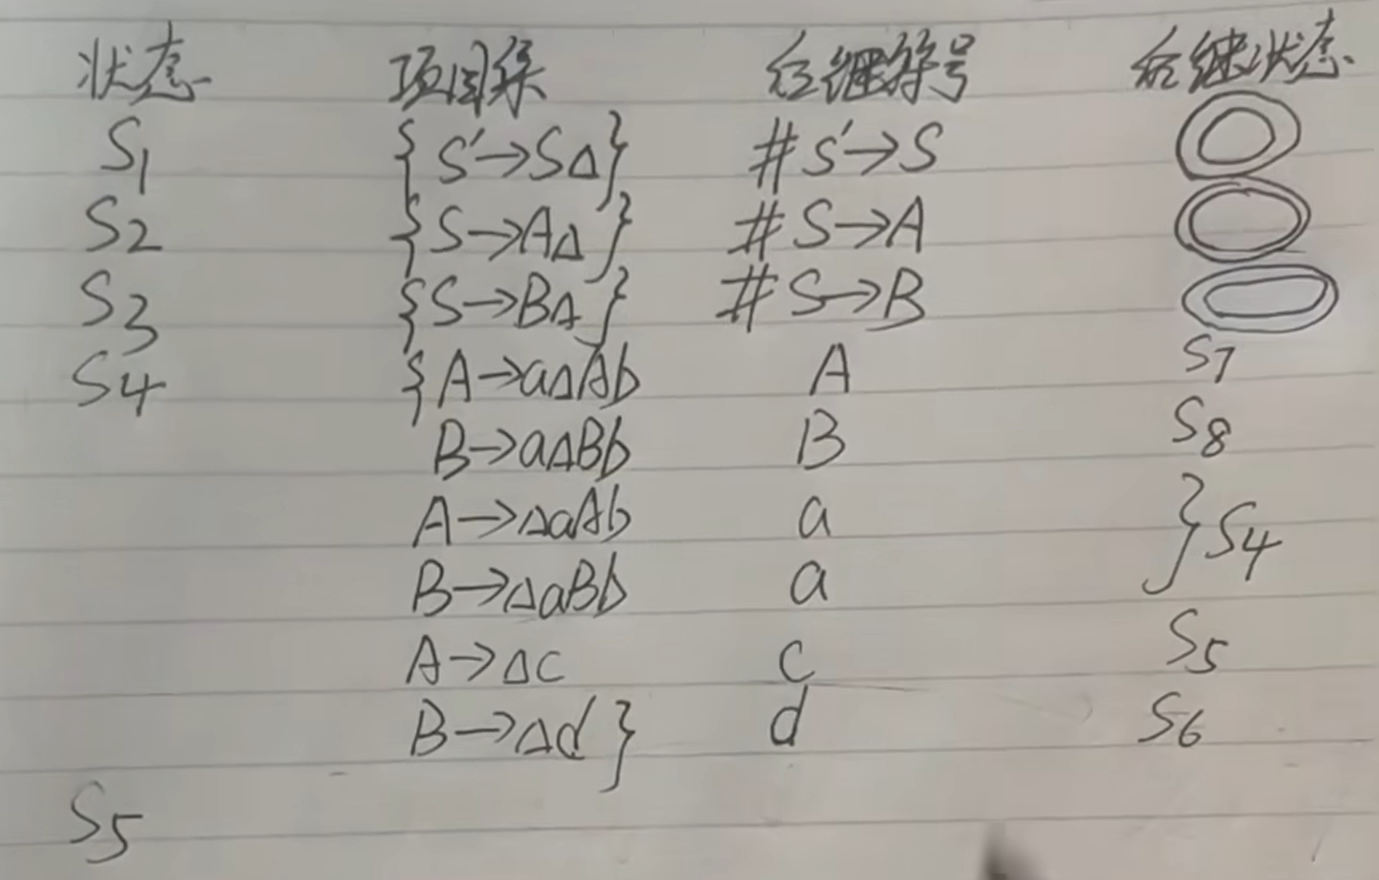 状态 项目集 后继符号 后继状态
S1 {S'→S△} #S'→S
S2 {S→A△} #S→A
S3 {S→B△} #S→B
S4 {A→a△Ab A S7
B→a△Bb B S8
A→△aAb a
B→△aBb a }S4
A→△c c S5
B→△d} d S6
S5